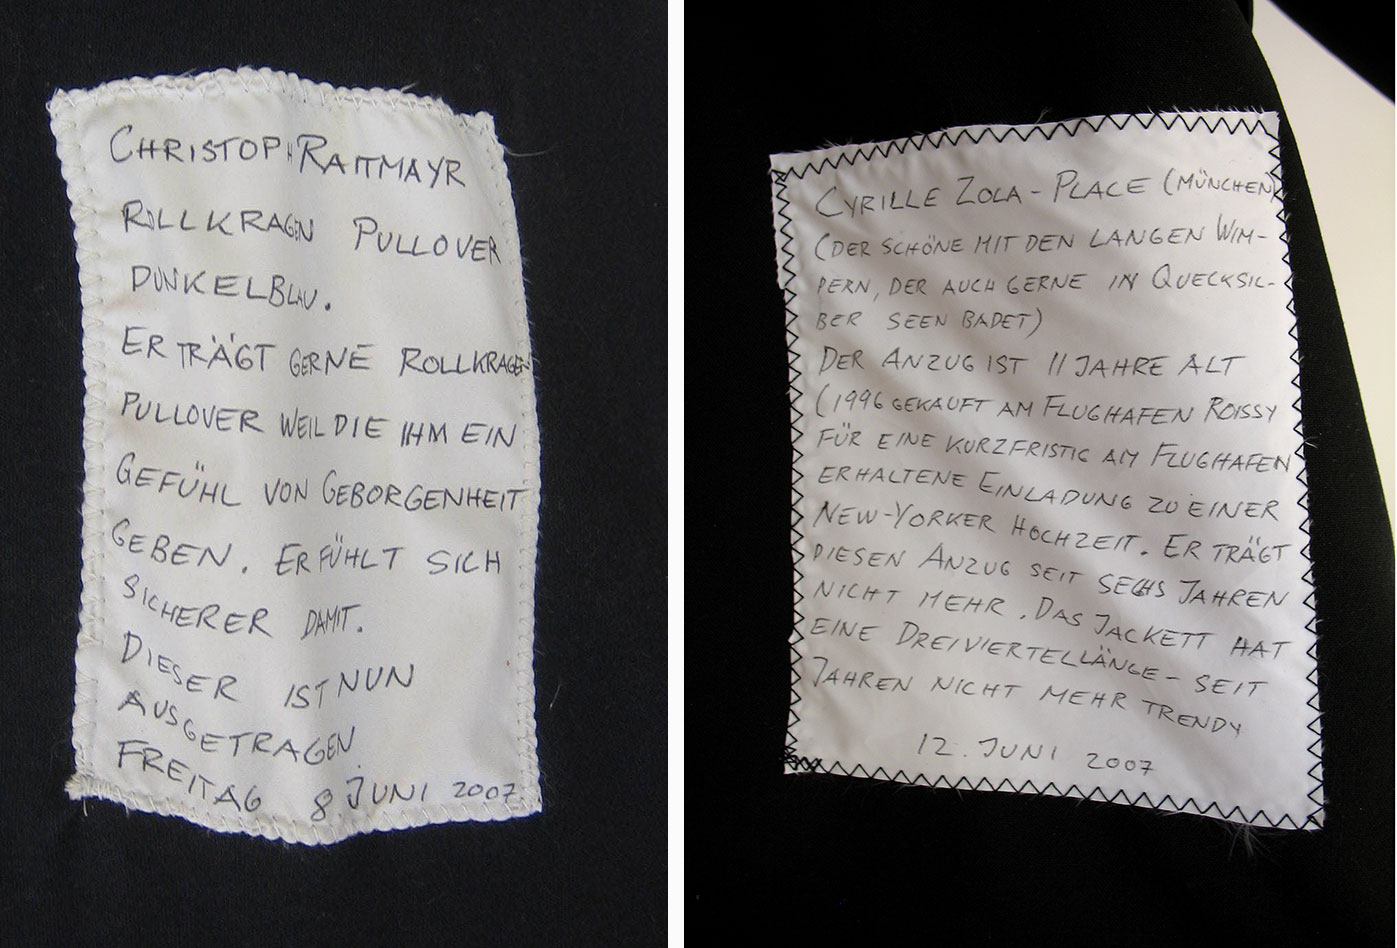 CHRISTOPH RAITMAYR
ROLLKRAGEN PULLOVER
DUNKELBLAU.
ER TRÄGT GERNE ROLLKRAGEN
PULLOVER WEIL DIE IHM EIN
GEFÜHL VON GEBORGENHEIT
GEBEN. ER FÜHLT SICH
SICHERER DAMIT.
DIESER IST NUN
AUSGETRAGEN.
FREITAG 8. JUNI 2007
CYRILLE ZOLA-PLACE (MÜNCHEN)
(DER SCHÖNE MIT DEN LANGEN WIM-
PERN, DER AUCH GERNE IN QUECKSIL-
BER SEEN BADET)
DER ANZUG IST 11 JAHRE ALT
(1996 GEKAUFT AM FLUGHAFEN ROISSY
FÜR EINE KURZFRISTIG AM FLUGHAFEN
ERHALTENE EINLADUNG ZU EINER
NEW-YORKER HOCHZEIT. ER TRÄGT
DIESEN ANZUG SEIT SECHS JAHREN
NICHT MEHR. DAS JACKETT HAT
EINE DREIVIERTELLÄNGE - SEIT
JAHREN NICHT MEHR TRENDY
12. JUNI 2007